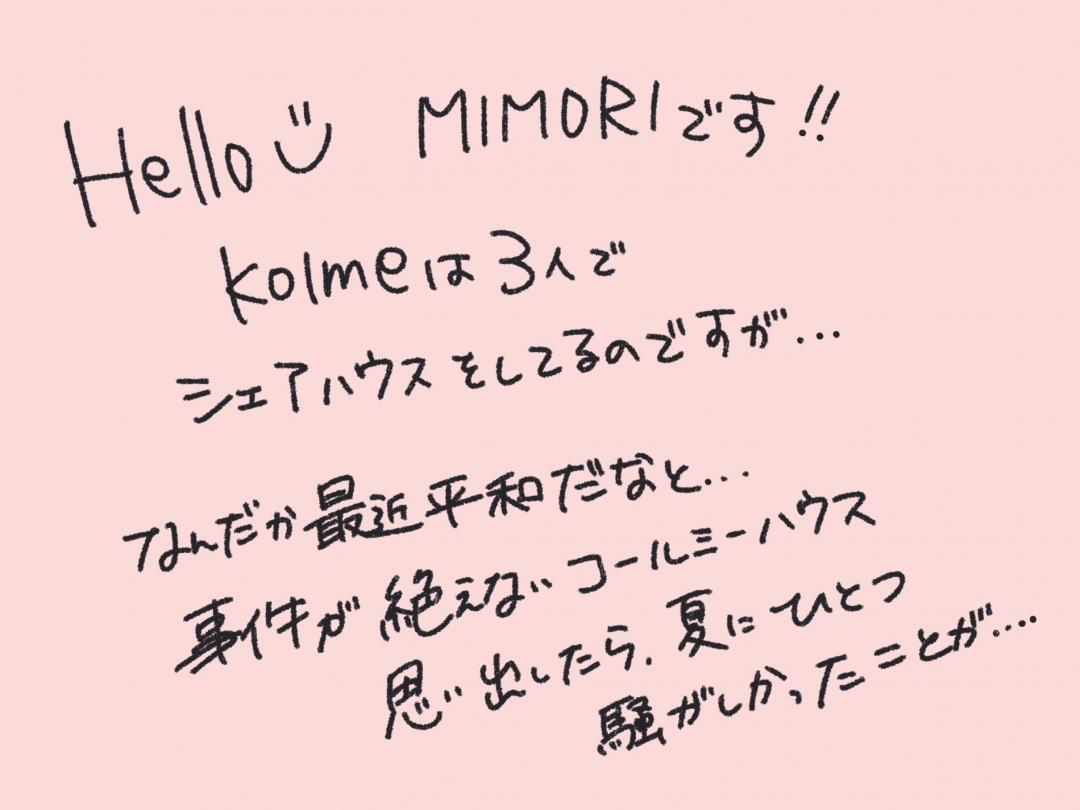 Hello MIMORIです!!
kolmeは3人で
シェアハウスをしてるのですが...
なんだか最近平和だなと...
事件が絶えないコールミーハウス
思い出したら、夏にひとつ
騒がしかったことが....